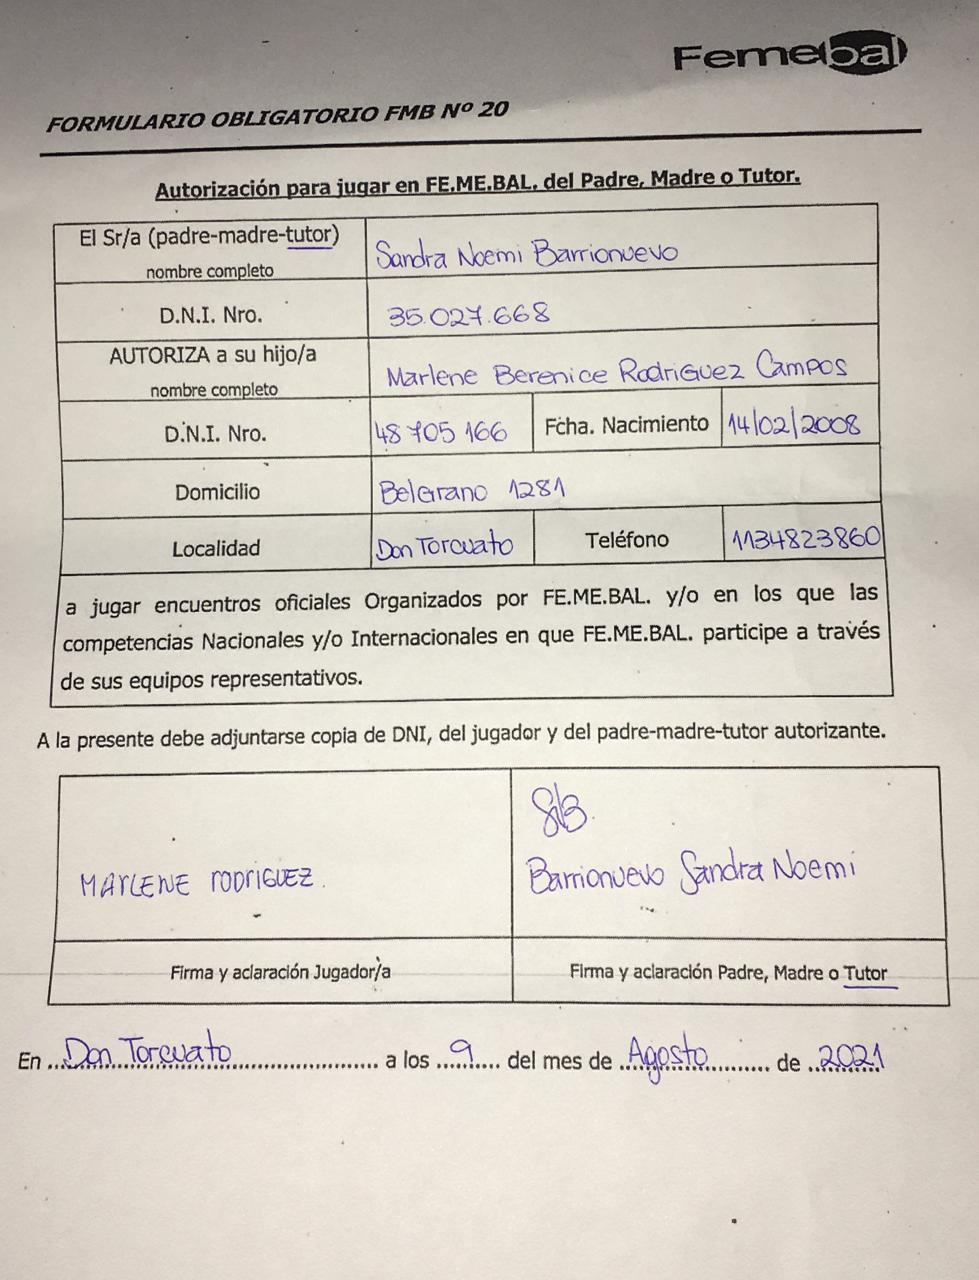 Femebal
FORMULARIO OBLIGATORIO FMB Nº 20
Autorización para jugar en FE.ME.BAL. del Padre, Madre o Tutor.
El Sr/a (padre-madre-tutor)
nombre completo
Sandra Noemi Barrionuevo
D.N.I. Nro.
35.027.668
AUTORIZA a su hijo/a
nombre completo
Marlene Berenice Rodriguez Campos
D.N.I. Nro.
48 705 166
Fcha. Nacimiento
14/02/2008
Domicilio
Belgrano 1281
Localidad
Don Torcuato
Teléfono
1134823860
a jugar encuentros oficiales Organizados por FE.ME.BAL. y/o en los que las
competencias Nacionales y/o Internacionales en que FE.ME.BAL. participe a través
de sus equipos representativos.
A la presente debe adjuntarse copia de DNI, del jugador y del padre-madre-tutor autorizante.
MARLENE RODRIGUEZ.
Barrionuevo Sandra Noemi
Firma y aclaración Jugador/a
Firma y aclaración Padre, Madre o Tutor
En Don Torcuato a los 9 del mes de Agosto de 2021